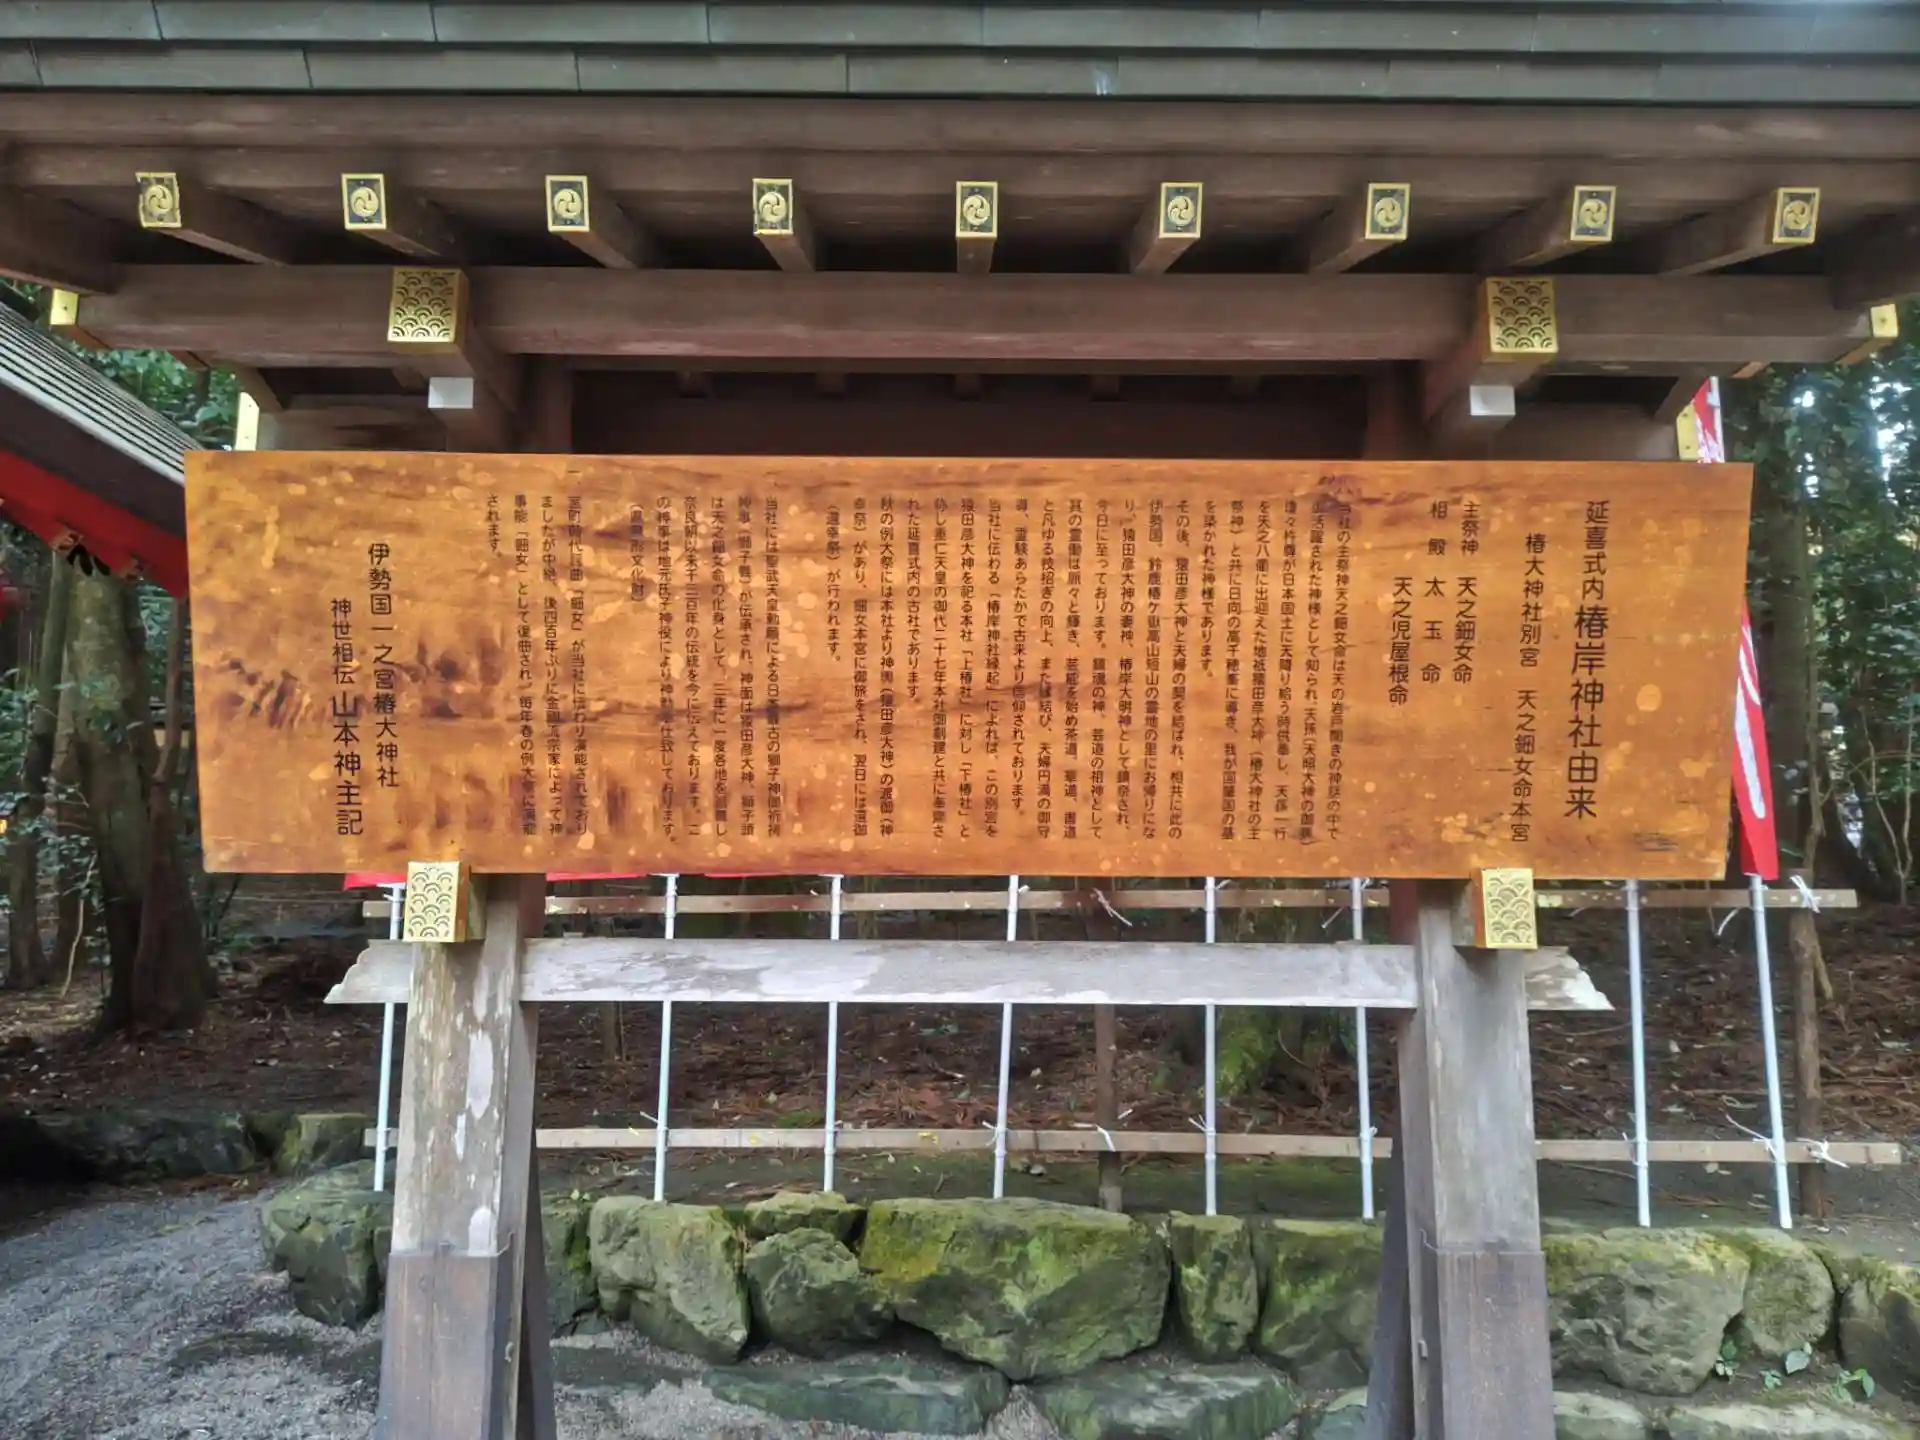 延喜式内 椿岸神社由来
椿大神社別宮 天之鈿女命本宮
主祭神 天之鈿女命
相殿 太玉命
天之児屋根命
当社の主祭神天之鈿女命は天の岩戸開きの神話の中で
活躍された神様として知られ、天孫(天照大神の御孫)
瓊々杵尊が日本国土に天降り給う時供奉し、天孫一行
を天之八衢に出迎えた地祗猿田彦大神(椿大神社の主
祭神)と共に日向の高千穂峯に導き、我が国肇国の基
を築かれた神様であります。
その後、猿田彦大神と夫婦の契を結ばれ、相共に此の
伊勢国、鈴鹿椿ケ嶽高山短山の霊地の里にお帰りにな
り、猿田彦大神の妻神、椿岸大明神として鎮祭され、
今日に至っております。鎮魂の神、芸道の祖神として
其の霊働は脈々と輝き、芸能を始め茶道、華道、書道
と凡ゆる技招ぎの向上、または結び、夫婦円満の御守
導、霊験あらたかで古来より信仰されております。
当社に伝わる「椿岸神社縁起」によれば、この別宮を
猿田彦大神を祀る本社「上椿社」に対し「下椿社」と
称し垂仁天皇の御代二十七年本社御創建と共に奉齋さ
れた延喜式内の古社であります。
秋の例大祭には本社より神輿(猿田彦大神)の渡御(神
幸祭)があり、鈿女本宮に御旅をされ、翌日には還御
(還幸祭)が行われます。
当社には聖武天皇勅願による日本最古の獅子神御祈祷
神事(獅子舞)が伝承され、神面は猿田彦大神、獅子頭
は天之鈿女命の化身として、三年に一度各地を巡舞し
奈良朝以来千三百年の伝統を今に伝えております。こ
の神事は地元氏子神役により神勤奉仕致しております。
(県無形文化財)
一、室町時代謡曲「鈿女」が当社に伝わり演能されており
ましたが中絶、後四百年ぶりに金剛流宗家によって神
事能「鈿女」として復曲され、毎年春の例大祭に演能
されます。
伊勢国一之宮椿大神社
神世相伝 山本神主記